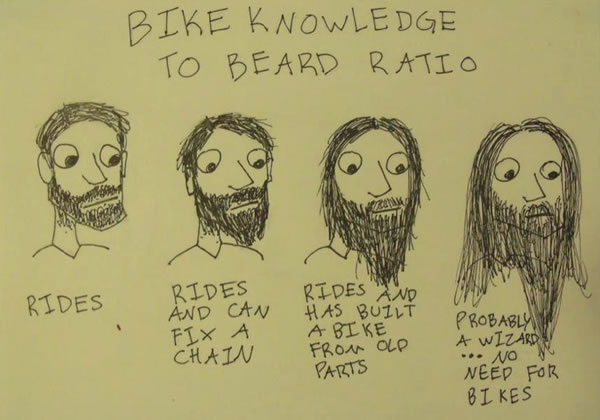 BIKE KNOWLEDGE
TO BEARD RATIO
RIDES
RIDES
AND CAN
FIX A
CHAIN
RIDES AND
HAS BUILT
A BIKE
FROM OLD
PARTS
PROBABLY
A WIZARD
... NO
NEED FOR
BIKES